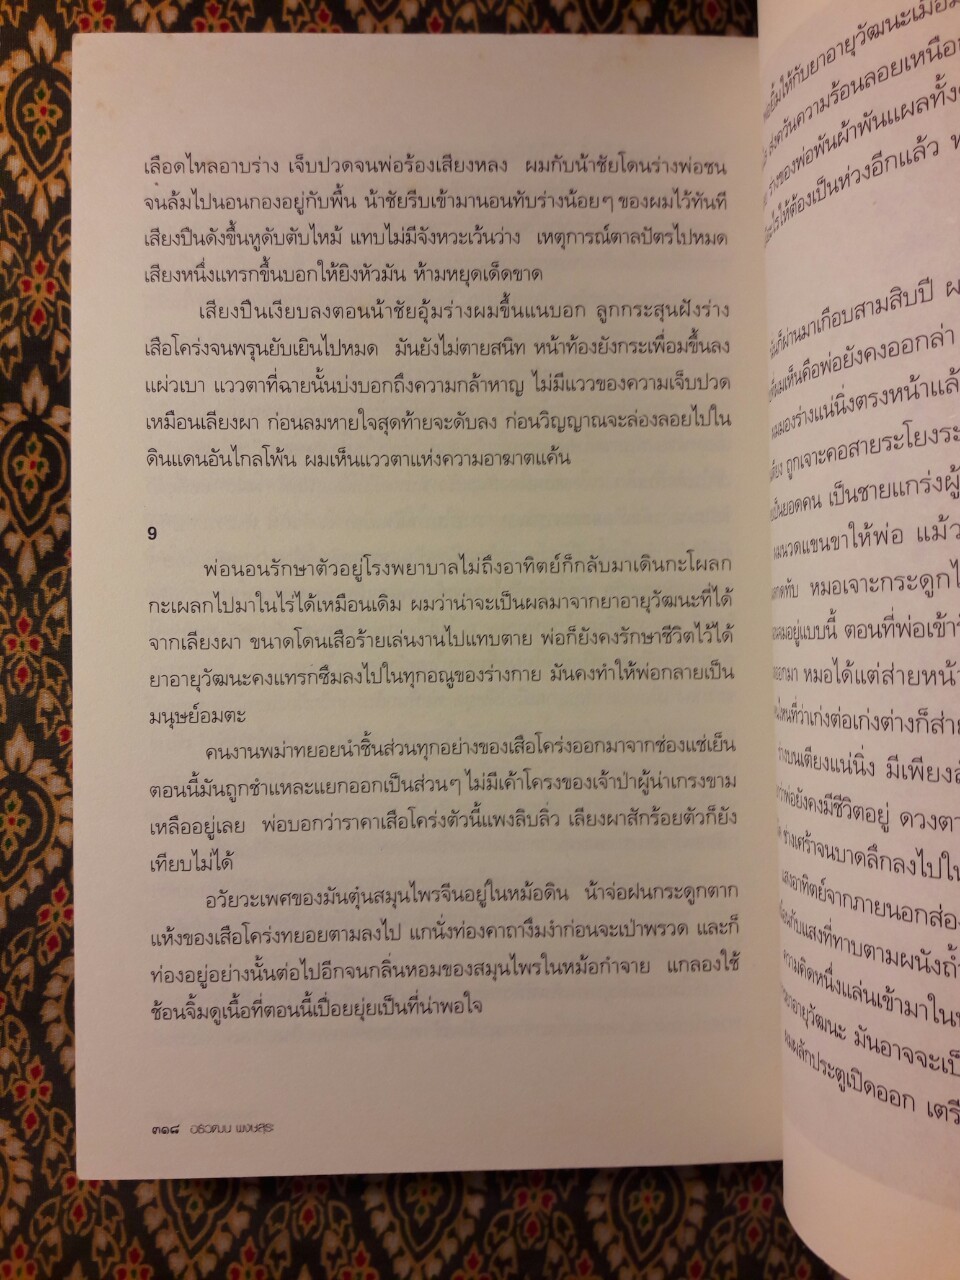 เลือดไหลอาบร่าง เจ็บปวดจนพ่อร้องเสียงหลง ผมกับน้าชัยโดนร่างพ่อชน
จนล้มไปนอนกองอยู่กับพื้น น้าชัยรีบเข้ามานอนทับร่างน้อยๆ ของผมไว้ทันที
เสียงปืนดังขึ้นหูดับตับไหม้ แทบไม่มีจังหวะเว้นว่าง เหตุการณ์ตาลปัตรไปหมด
เสียงหนึ่งแทรกขึ้นบอกให้ยิงหัวมัน ห้ามหยุดเด็ดขาด
เสียงปืนเงียบลงตอนน้าชัยอุ้มร่างผมขึ้นแนบอก ลูกกระสุนฝังร่าง
เสือโคร่งจนพรุนยับเยินไปหมด มันยังไม่ตายสนิท หน้าท้องยังกระเพื่อมขึ้นลง
แผ่วเบา แววตาที่ฉายนั้นบ่งบอกถึงความกล้าหาญ ไม่มีแววของความเจ็บปวด
เหมือนเลียงผา ก่อนลมหายใจสุดท้ายจะดับลง ก่อนวิญญาณจะล่องลอยไปใน
ดินแดนอันไกลโพ้น ผมเห็นแววตาแห่งความอาฆาตแค้น
9
พ่อนอนรักษาตัวอยู่โรงพยาบาลไม่ถึงอาทิตย์ก็กลับมาเดินกะโผลก
กะเผลกไปมาในไร่ได้เหมือนเดิม ผมว่าน่าจะเป็นผลมาจากยาอายุวัฒนะที่ได้
จากเลียงผา ขนาดโดนเสือร้ายเล่นงานไปแทบตาย พ่อก็ยังคงรักษาชีวิตไว้ได้
ยาอายุวัฒนะคงแทรกซึมลงไปในทุกอณูของร่างกาย มันคงทำให้พ่อกลายเป็น
มนุษย์อมตะ
คนงานพม่าทยอยนำชิ้นส่วนทุกอย่างของเสือโคร่งออกมาจากช่องแช่เย็น
ตอนนี้มันถูกชำแหละแยกออกเป็นส่วนๆ ไม่มีเค้าโครงของเจ้าป่าผู้น่าเกรงขาม
เหลืออยู่เลย พ่อบอกว่าราคาเสือโคร่งตัวนี้แพงลิบลิ่ว เลียงผาสักร้อยตัวก็ยัง
เทียบไม่ได้
อวัยวะเพศของมันตุ๋นสมุนไพรจีนอยู่ในหม้อดิน น้าจ่อฝนกระดูกตาก
แห้งของเสือโคร่งทยอยตามลงไป แกนั่งท่องคาถางึมงำก่อนจะเป่าพรวด และก็
ท่องอยู่อย่างนั้นต่อไปอีกจนกลิ่นหอมของสมุนไพรในหม้อกำจาย แกลองใช้
ช้อนจิ้มดูเนื้อที่ตอนนี้เปื่อยยุ่ยเป็นที่น่าพอใจ
๓๑๘
ให้กับยาอายุวัฒนะ
ควันความร้อนลอยเหนือ
ร่างของพ่อพันผ้าพันแผลทั้ง
ให้ต้องเป็นห่วงอีกแล้ว
ก็ผ่านมาเกือบสามสิบปี
เห็นคือพ่อยังคงออกล่า
มองร่างแน่นิ่งตรงหน้า
ถูกเจาะคอสายระโยงระ
เป็นยอดคน เป็นชายแกร่งผู้
นวดแขนขาให้พ่อ แม้ว
หมอเจาะกระดูก
อยู่แบบนี้ ตอนที่พ่อเข้า
ออกมา หมอได้แต่ส่ายหน้า
ที่ว่าเก่งต่อเก่งต่างก็ส่าย
ร่างบนเตียงแน่นิ่ง มีเพียง
พ่อยังคงมีชีวิตอยู่ ดวงตา
ช่างเศร้าจนบาดลึกลงไปใน
แสงอาทิตย์จากภายนอกส่อง
กับแสงที่ทาบตามผนังถ้ำ
ความคิดหนึ่งแล่นเข้ามาใน
ยาอายุวัฒนะ มันอาจจะเป็
ผมผลักประตูเปิดออก